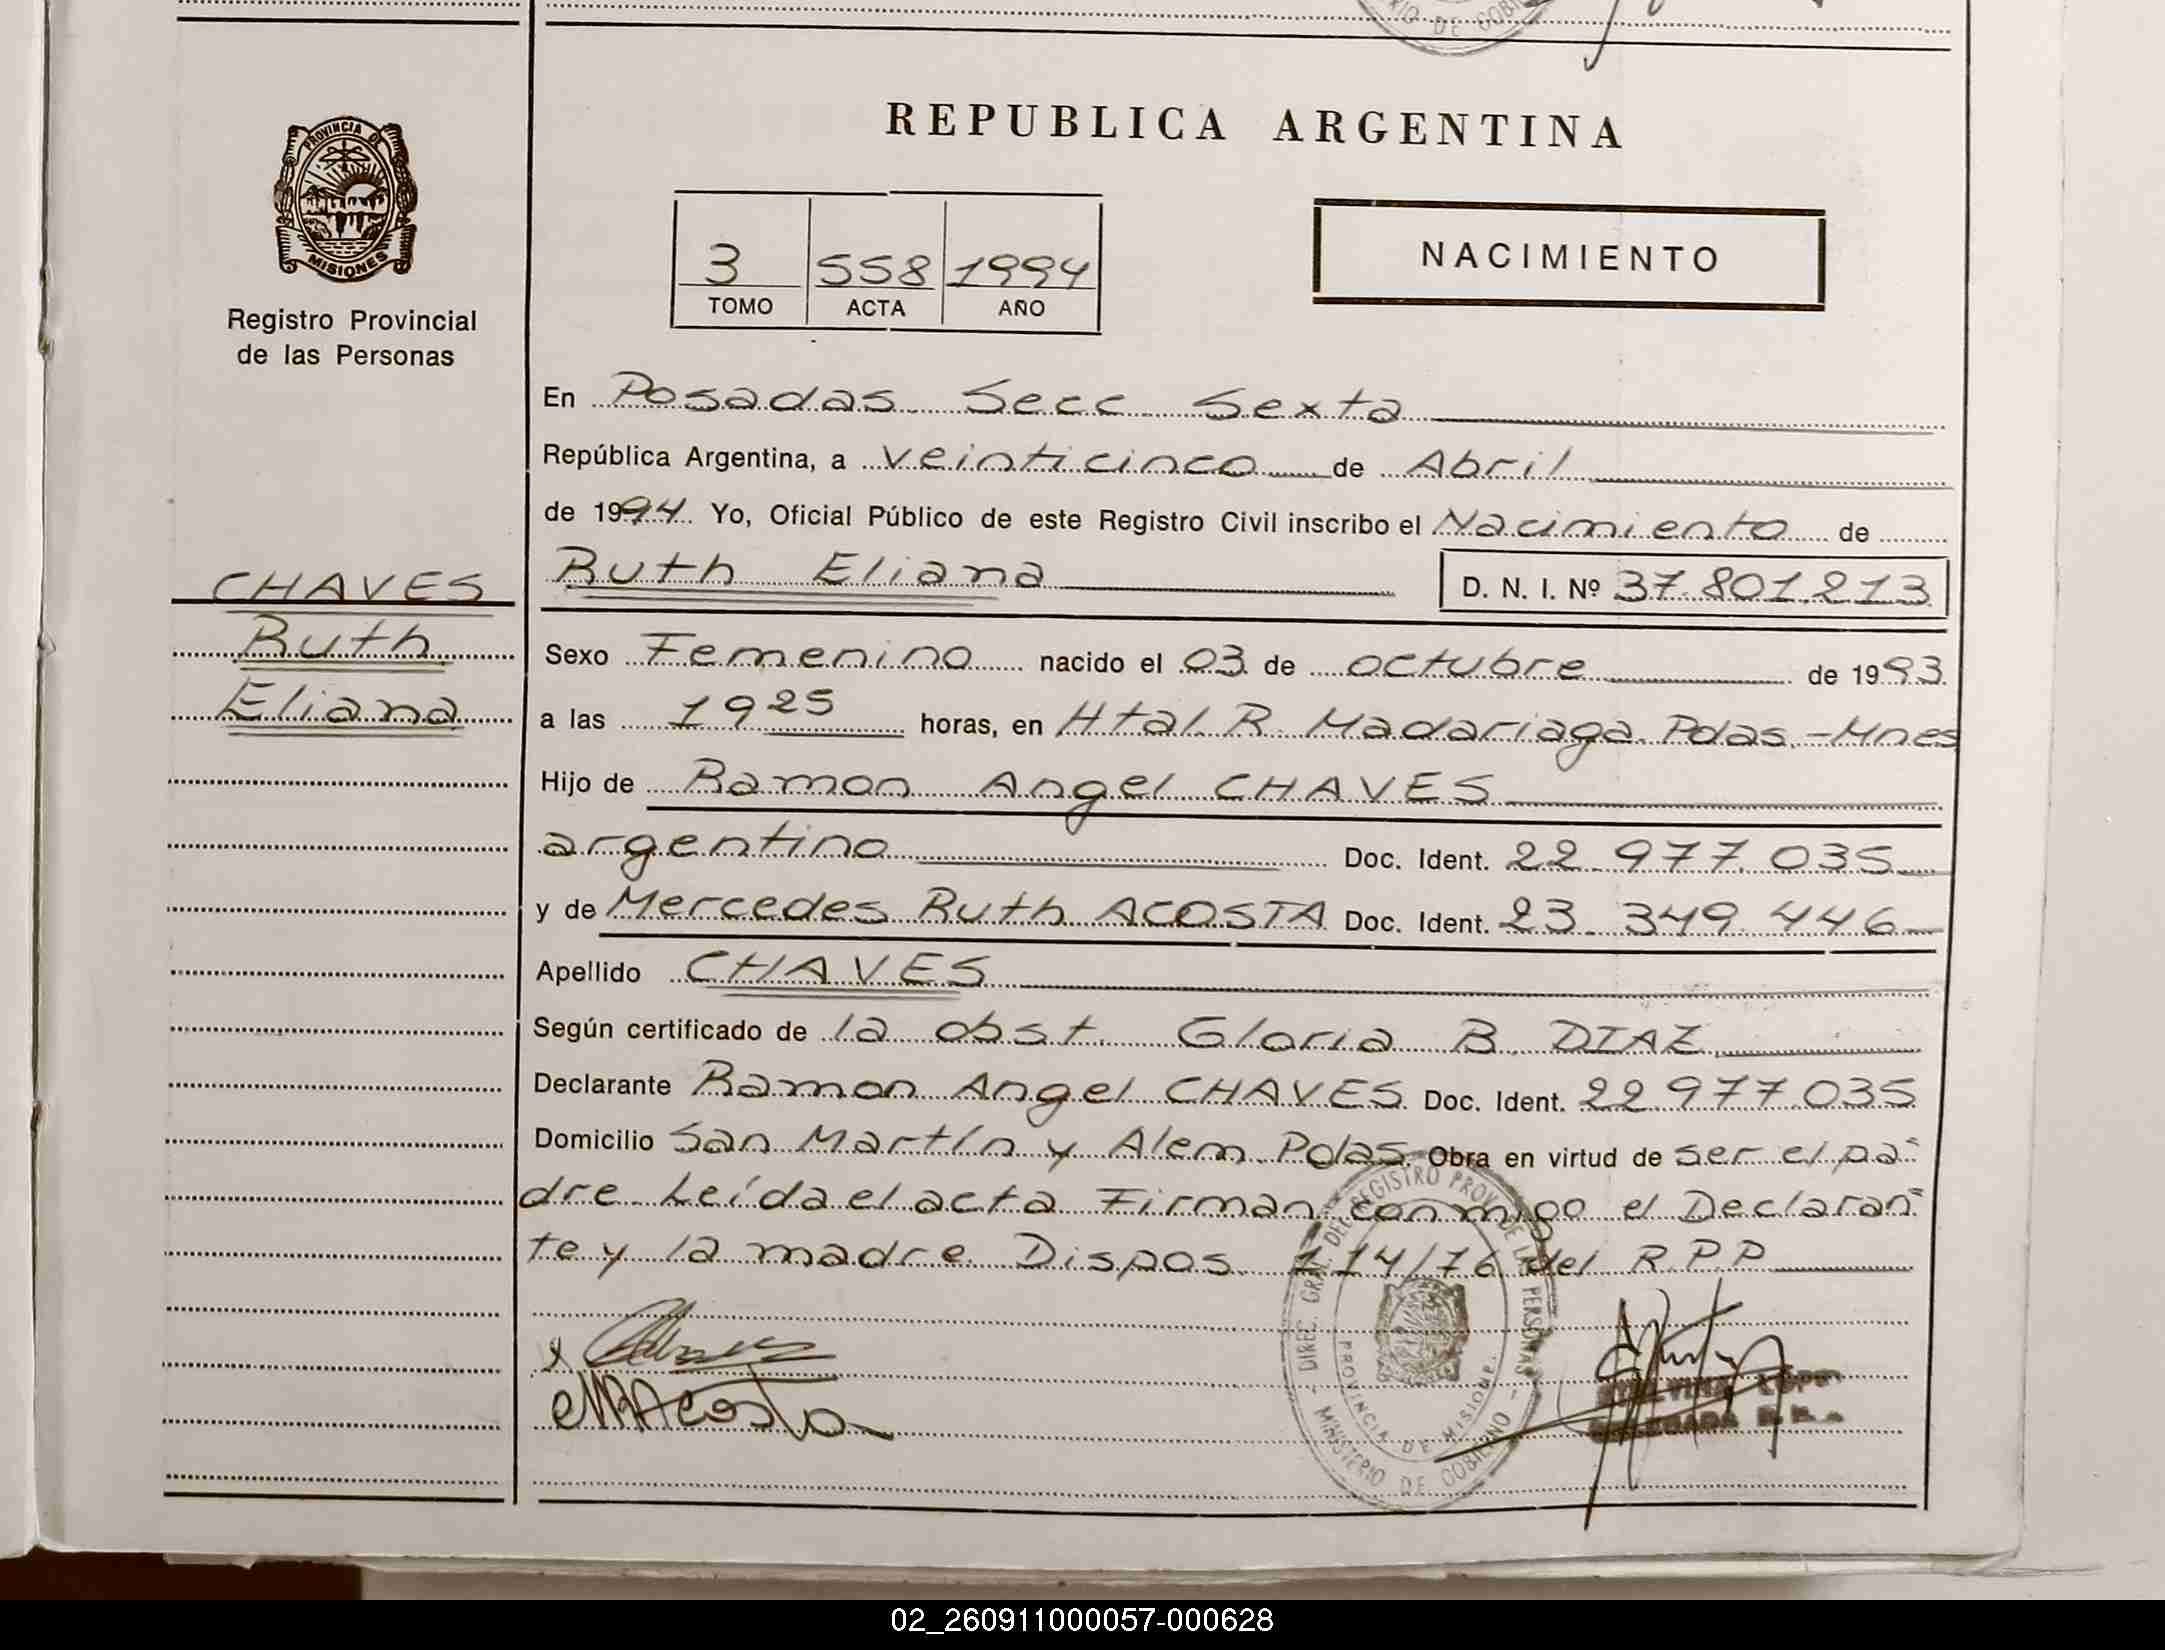 REPUBLICA ARGENTINA
PROVINCIA DE
MISIONES
Registro Provincial
de las Personas
3 558 1994
TOMO ACTA AÑO
NACIMIENTO
En Posadas Secc Sexta
República Argentina, a veinticinco de Abril
de 1994. Yo, Oficial Público de este Registro Civil inscribo el Nacimiento de
CHAVES
Ruth
Eliana
Ruth Eliana D. N. I. Nº 37.801.213
Sexo Femenino nacido el 03 de octubre de 1993
a las 19 25 horas, en Htal. R. Madariaga. Pdas.-Mnes
Hijo de Ramon Angel CHAVES
argentino Doc. Ident. 22.977.035
y de Mercedes Ruth ACOSTA Doc. Ident. 23.349.446
Apellido CHAVES
Según certificado de la obst. Gloria B. DIAZ
Declarante Ramon Angel CHAVES Doc. Ident. 22.977.035
Domicilio San Martín y Alem. Pdas. Obra en virtud de ser el pa=
dre. Leída el acta Firman conmigo el Declaran=
te y la madre. Dispos. 114/76 del R.P.P
MRAcosta
DIREC. GRAL. DEL REGISTRO PROV. DE LAS PERSONAS
PROVINCIA DE MISIONES
MINISTERIO DE GOBIERNO
02_260911000057-000628